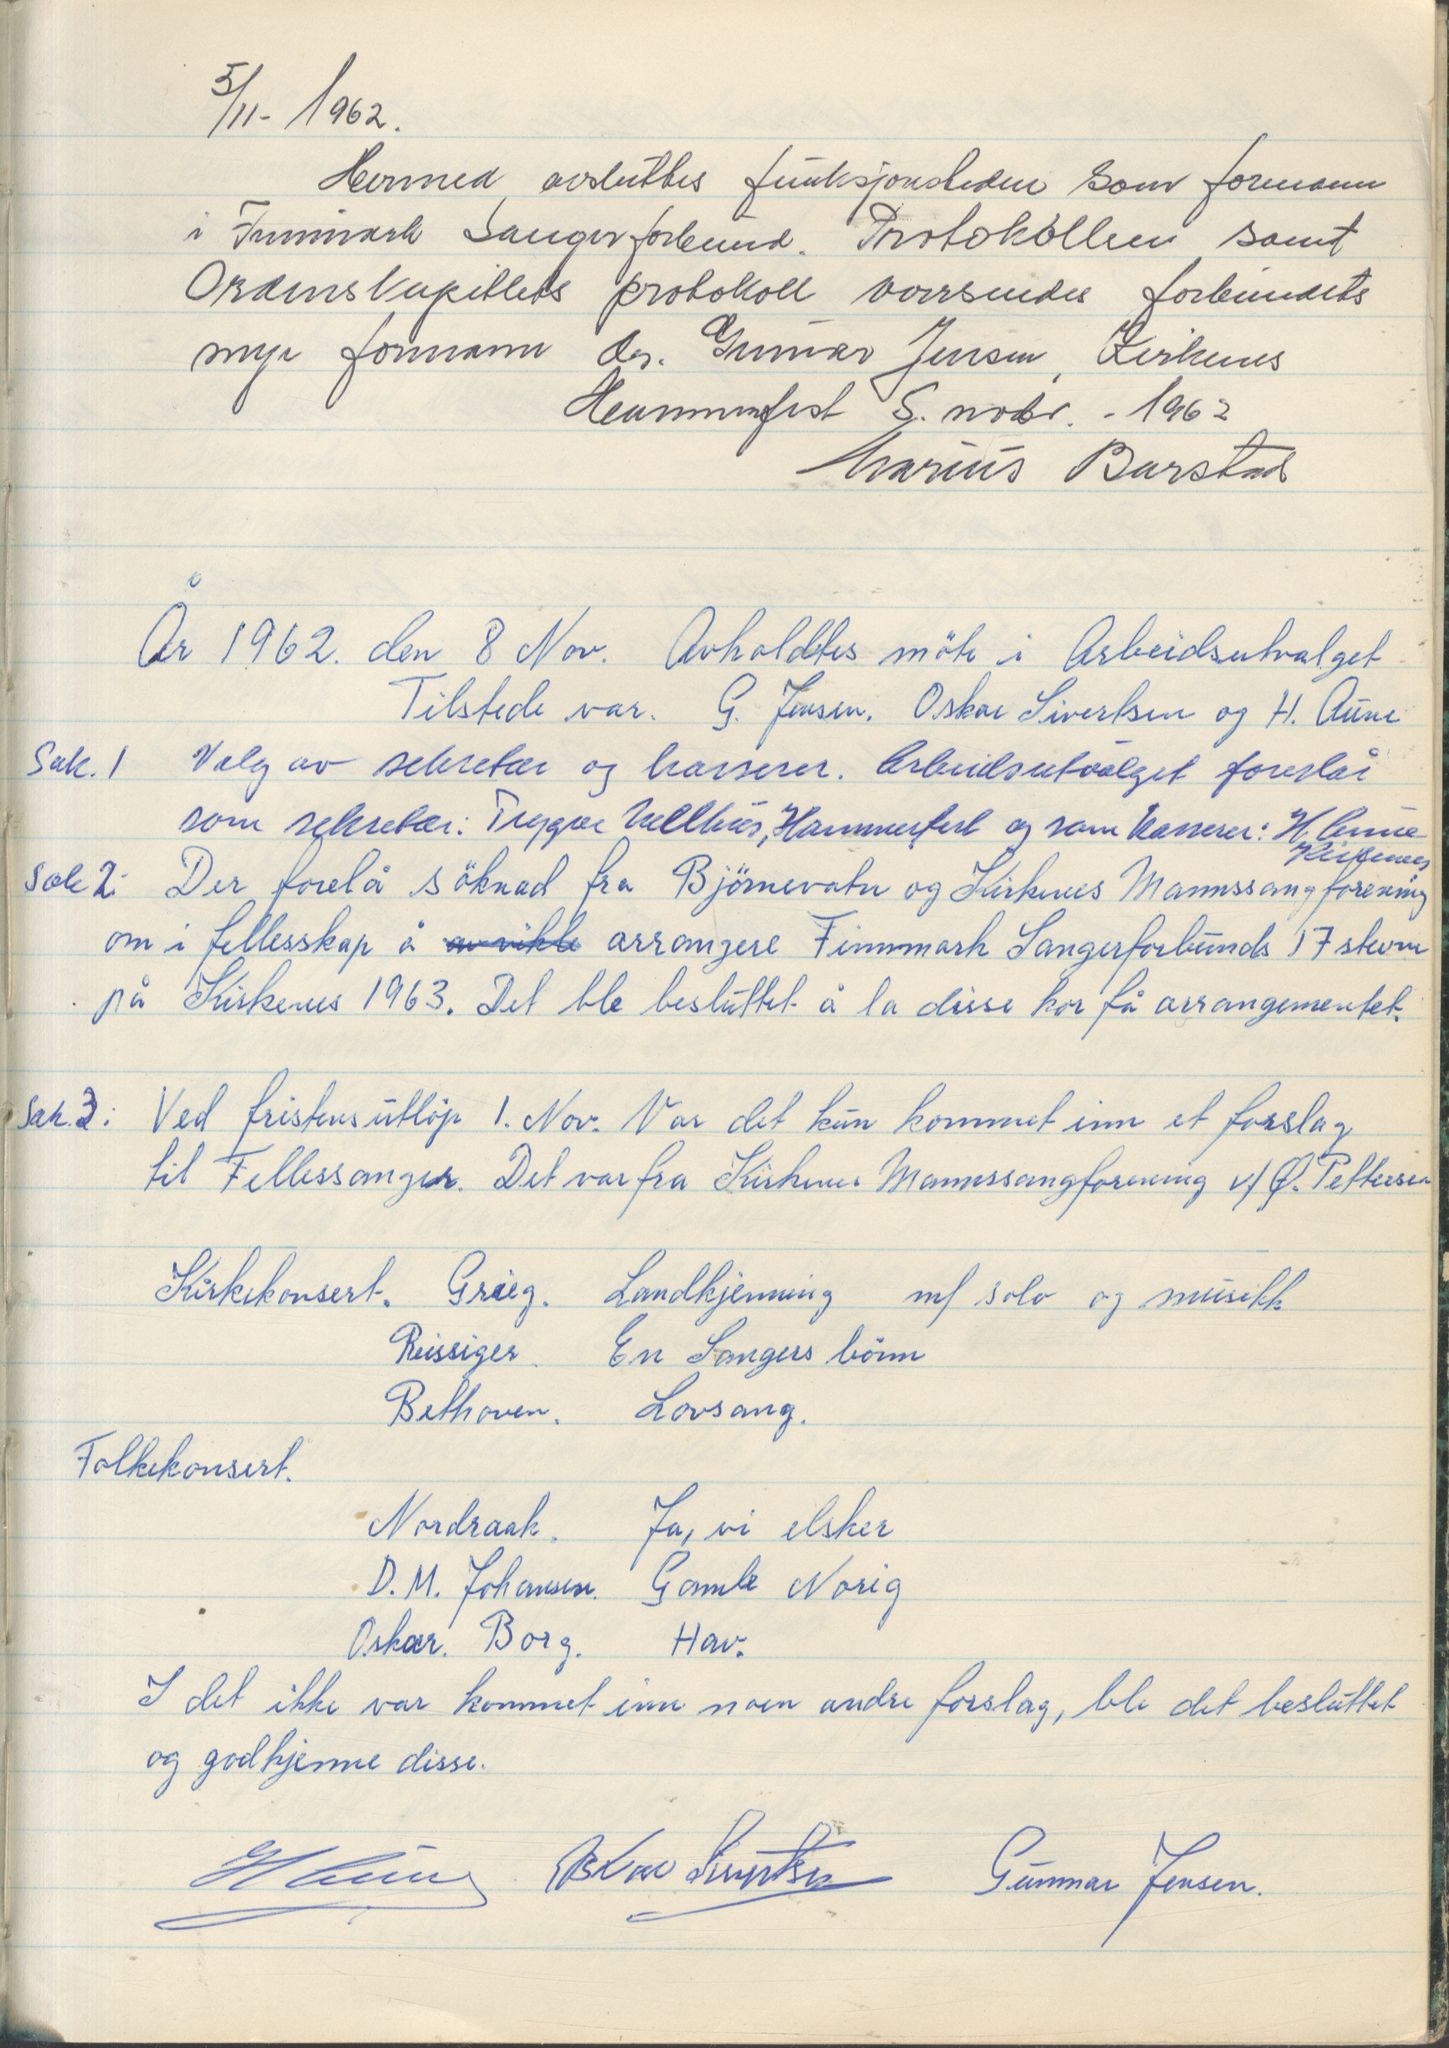 5/11- 1962.
Hermed avsluttes funksjonstiden som formann
i Finnmark Sangerforbund. Protokollen samt
Ordenskapitlets protokoll oversendes forbundets
nye formann dr. Gunnar Jensen, Kirkenes
Hammerfest 5. novbr. - 1962
Marius Barstad
År 1962. den 8 Nov. Avholdtes möte i Arbeidsutvalget
Tilstede var. G. Jensen. Oskar Sivertsen og H. Aune
Sak. 1 Valg av sekretær og kasserer. Arbeidsutvalget foreslår
som sekretær: Trygve Hellhus, Hammerfest og som kasserer: H. Aune
Kirkenes
Sak 2: Der forelå söknad fra Björnevatn og Kirkenes Mannssangforening
om i fellesskap å avvikle arrangere Finnmark Sangerforbunds 17 stevne
på Kirkenes 1963. Det ble besluttet å la disse kor få arrangementet.
Sak. 3: Ved fristens utlöp 1. Nov. Var det kun kommet inn et forslag
til Fellessanger. Det var fra Kirkenes Mannssangforening v/ Ø. Pettersen
Kirkekonsert. Grieg. Landkjenning m/ solo og musikk
Reissiger. En Sangers bönn
Bethoven. Lovsang.
Folkekonsert.
Nordraak. Ja, vi elsker
D. M. Johansen. Gamle Norig
Oskar. Borg. Hav.
I det ikke var kommet inn noen andre forslag, ble det besluttet
og godkjenne disse.
H Aune Oskar Sivertsen Gunnar Jensen.